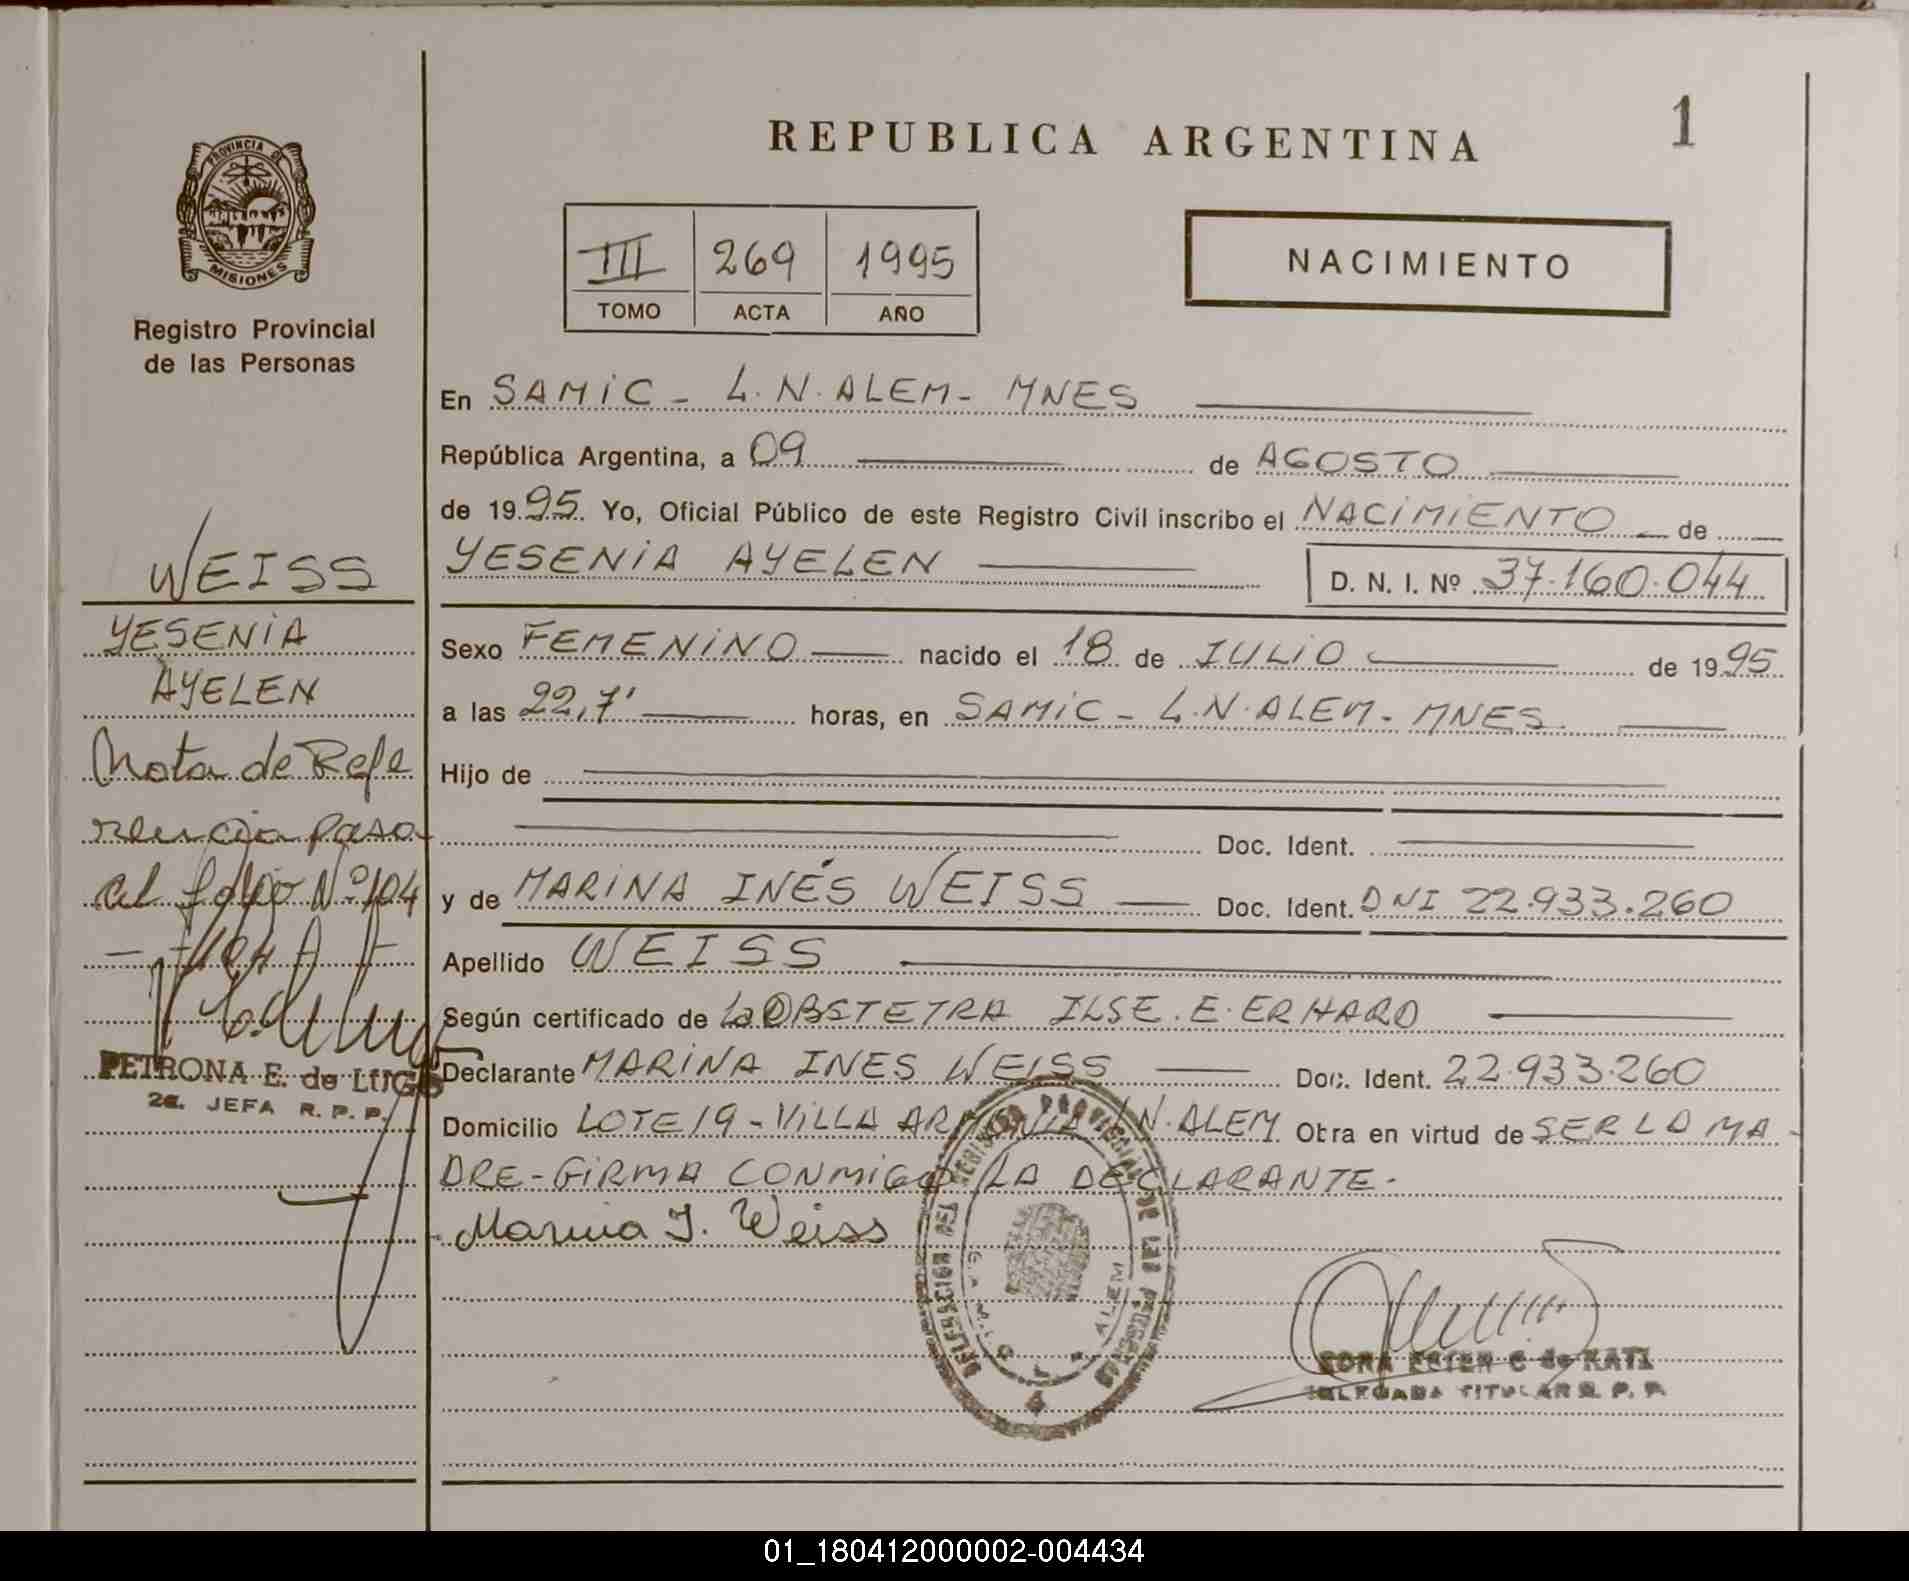 REPUBLICA ARGENTINA
1
PROVINCIA DE
MISIONES
Registro Provincial
de las Personas
III 269 1995
TOMO ACTA AÑO
NACIMIENTO
En SAMIC - L.N. ALEM - MNES
República Argentina, a 09 de AGOSTO
de 1995 Yo, Oficial Público de este Registro Civil inscribo el NACIMIENTO de
YESENIA AYELEN D. N. I. Nº 37.160.044
Sexo FEMENINO nacido el 18 de JULIO de 1995
a las 22,7' horas, en SAMIC - L.N. ALEM - MNES.
Hijo de
Doc. Ident.
y de MARINA INÉS WEISS Doc. Ident. DNI 22.933.260
Apellido WEISS
Según certificado de La OBSTETRA ILSE. E. ERHARD
Declarante MARINA INES WEISS Doc. Ident. 22.933.260
Domicilio LOTE 19 - VILLA ARMONIA L.N. ALEM Obra en virtud de SER LA MA-
DRE - FIRMA CONMIGO LA DECLARANTE.
Marina I. Weiss
DELEGACION DEL REGISTRO PROVINCIAL DE LAS PERSONAS
ALEM
ESTER C de KATZ
DELEGADA TITULAR R. P. P.
WEISS
YESENIA
AYELEN
Nota de Refe
rencia Pasa
al folio Nº 104
PETRONA E. de LUGO
2a. JEFA R. P. P.
01_180412000002-004434